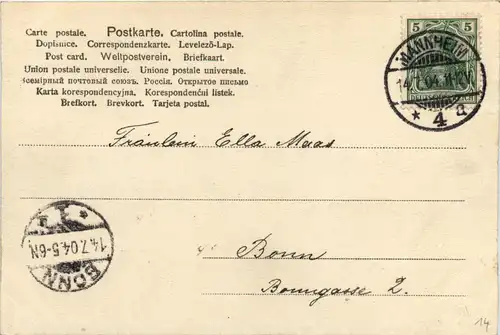 Carte postale. Postkarte. Cartolina postale.
Dopisnice. Correspondenzkarte. Levelező-Lap.
Post card. Weltpostverein. Briefkaart.
Union postale universelle. Unione postale universale.
Всемірный почтовый союзъ. Россія. Открытое письмо
Karta korespondencyjna. Korespondenční listek.
Brefkort. Brevkort. Tarjeta postal.
5 5
MANNHEIM
14.7.04.11-12V
* 4 d
Fräulein Ella Maas
* 1 *
14.7.04.5-6N.
BONN
Bonn
Bonngasse 2.
14